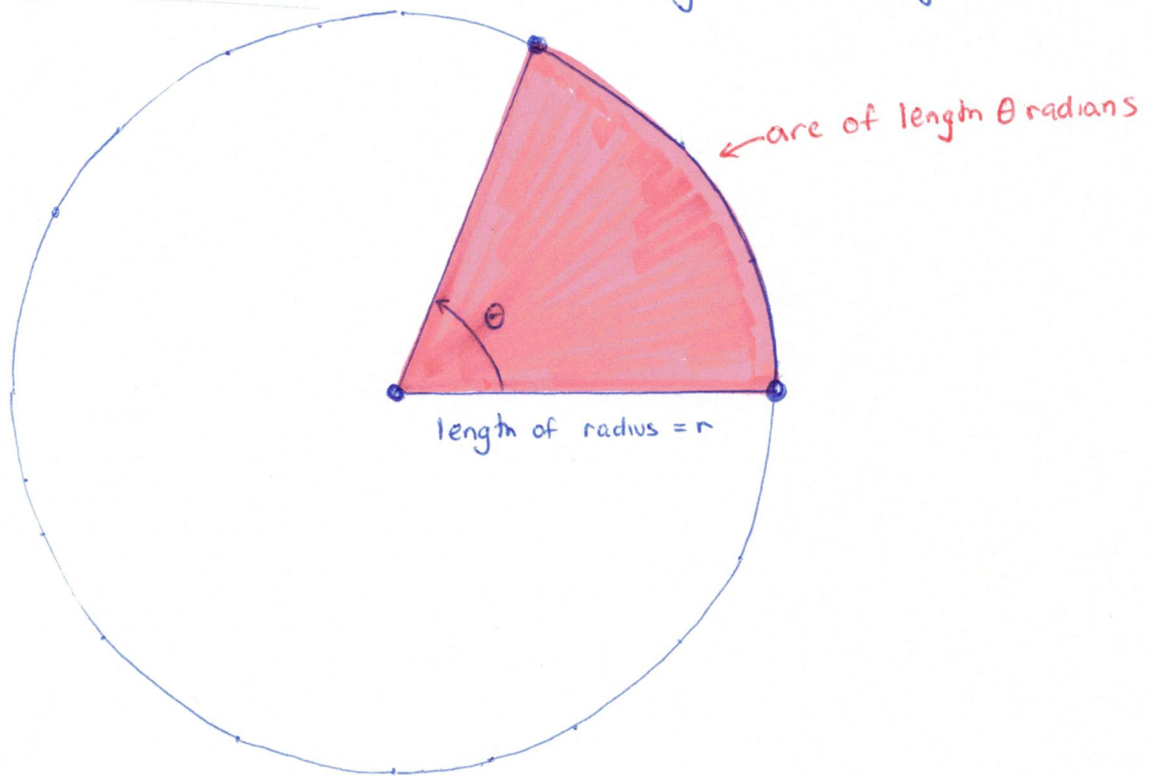 arc of length θ radians
θ
length of radius = r